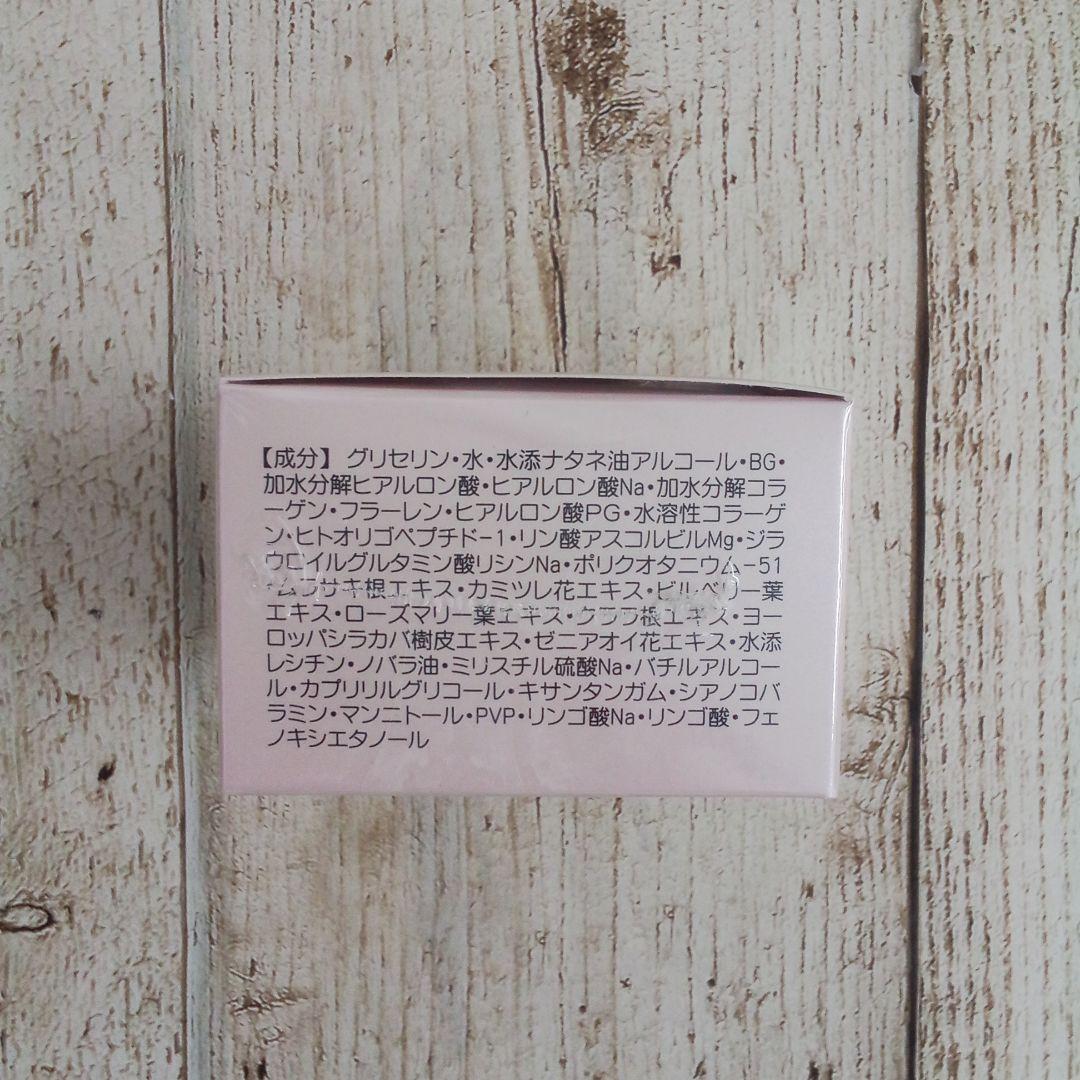 【成分】 グリセリン・水・水添ナタネ油アルコール・BG・
加水分解ヒアルロン酸・ヒアルロン酸Na・加水分解コラ
ーゲン・フラーレン・ヒアルロン酸PG・水溶性コラーゲ
ン・ヒトオリゴペプチド-1・リン酸アスコルビルMg・ジラ
ウロイルグルタミン酸リシンNa・ポリクオタニウム-51
・ムラサキ根エキス・カミツレ花エキス・ビルベリー葉
エキス・ローズマリー葉エキス・クララ根エキス・ヨー
ロッパシラカバ樹皮エキス・ゼニアオイ花エキス・水添
レシチン・ノバラ油・ミリスチル硫酸Na・バチルアルコー
ル・カプリリルグリコール・キサンタンガム・シアノコバ
ラミン・マンニトール・PVP・リンゴ酸Na・リンゴ酸・フェ
ノキシエタノール